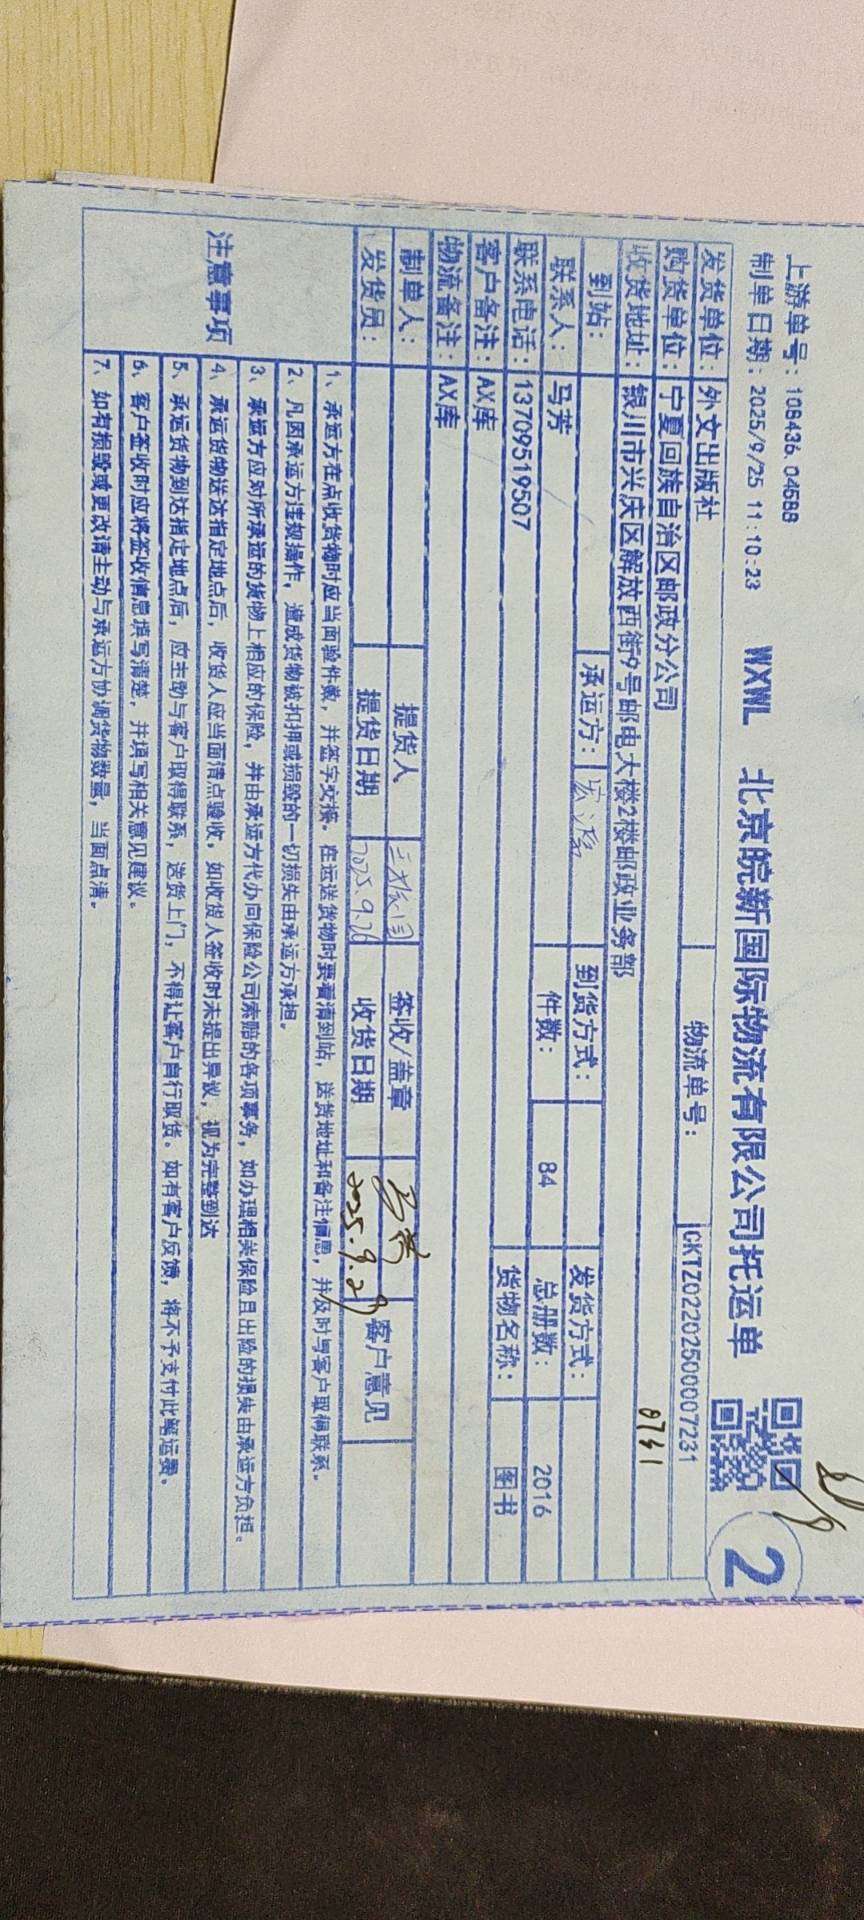 上游单号：108436.04588
制单日期：2025/9/25 11:10:23
WXWL 北京皖新国际物流有限公司托运单
2
发货单位：外文出版社 物流单号：CKTZ02202500007231
购货单位：宁夏回族自治区邮政分公司
收货地址：银川市兴庆区解放西街9号邮电大楼2楼邮政业务部 0731
到站： 承运方： 到货方式： 发货方式：
联系人：马芳 件数：84 总册数：2016
联系电话：13709519507 货物名称：图书
客户备注：AX库
物流备注：AX库
制单人： 提货人 签收/盖章 马芳 客户意见
发货员： 提货日期 2025.9.26 收货日期 2025.9.29
注意事项
1、承运方在点收货物时应当面验件数，并签字交接。在运送货物时要看清到站，送货地址和备注信息，并及时与客户取得联系。
2、凡因承运方违规操作，造成货物被扣押或损毁的一切损失由承运方承担。
3、承运方应对所承运的货物上相应的保险，并由承运方代办向保险公司索赔的各项事务，如办理相关保险且出险的损失由承运方负担。
4、承运货物送达指定地点后，收货人应当面清点验收，如收货人签收时未提出异议，视为完整到达
5、承运货物到达指定地点后，应主动与客户取得联系，送货上门，不得让客户自行取货。如有客户反馈，将不予支付此笔运费。
6、客户签收时应将签收信息填写清楚，并填写相关意见建议。
7、如有损毁或更改请主动与承运方协调货物数量，当面点清。